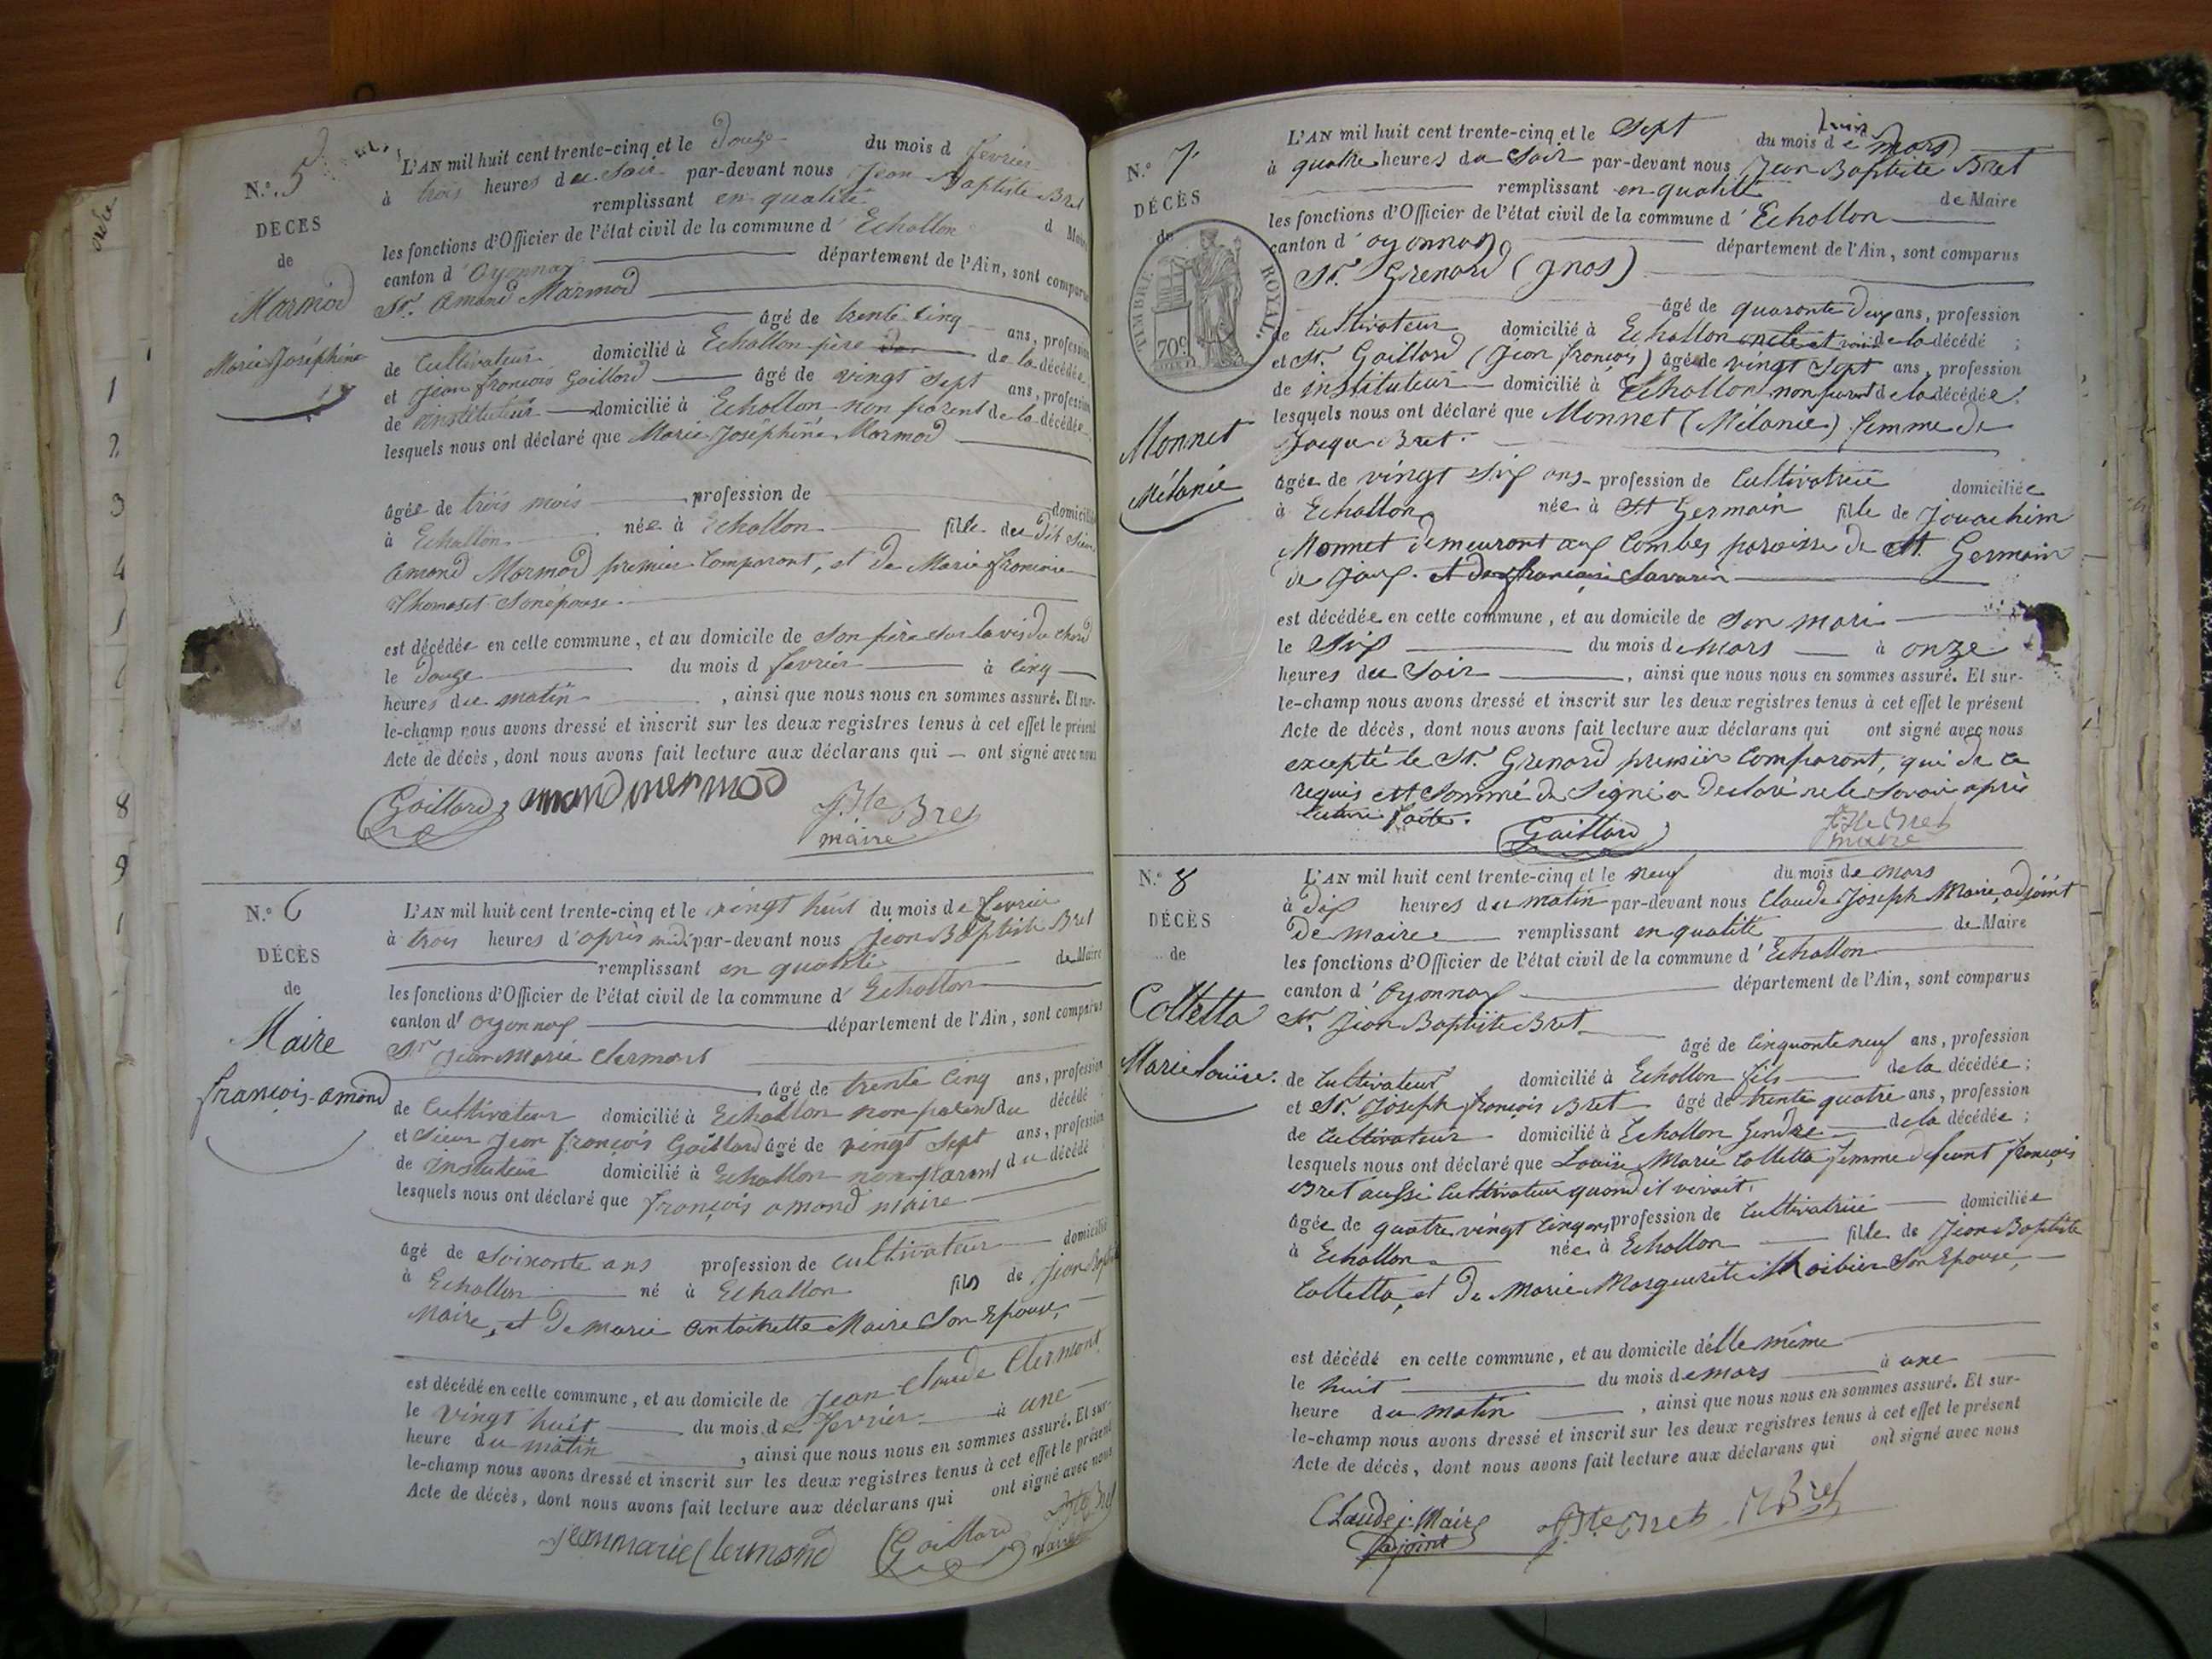 N.º 5
DÉCES
de
Marmod
Marie Joséphine
L'AN mil huit cent trente-cinq et le Douze du mois d fevrier
à trois heures du Soir par-devant nous Jean Baptiste Bret
remplissant en qualité d Maire
les fonctions d'Officier de l'état civil de la commune d' Echallon
canton d' Oyonnax département de l'Ain, sont comparus
Sr. Amand Marmod
âgé de trente cinq ans, profession
de Cultivateur domicilié à Echallon père de la décédée
et Jean françois Gaillard âgé de vingt Sept ans, profession
de instituteur domicilié à Echallon non parent de la décédée
lesquels nous ont déclaré que Marie Joséphine Marmod
âgée de trois mois profession de domiciliée
à Echallon née à Echallon fille du dit Sieur
Amand Marmod premier Comparant, et de Marie francoise
Thomasset Son épouse
est décédée en cette commune, et au domicile de Son père
le Douze du mois d fevrier à Cinq
heures du matin, ainsi que nous nous en sommes assuré. Et sur-
le-champ nous avons dressé et inscrit sur les deux registres tenus à cet effet le présent
Acte de décès, dont nous avons fait lecture aux déclarans qui — ont signé avec nous
Gaillard amand mermod JBte Bret
maire
N.º 6
DÉCÈS
de
Maire
françois-amand
L'AN mil huit cent trente-cinq et le vingt huit du mois de fevrier
à trois heures d'après midi par-devant nous Jean Baptiste Bret
remplissant en qualité de Maire
les fonctions d'Officier de l'état civil de la commune d' Echallon
canton d' Oyonnax département de l'Ain, sont comparus
Sr Jean Marie Clermont
âgé de trente Cinq ans, profession
de Cultivateur domicilié à Echallon non parent du décédé
et Sieur Jean françois Gaillard âgé de vingt Sept ans, profession
de instituteur domicilié à Echallon non parent du décédé
lesquels nous ont déclaré que françois amand maire
âgé de Soixante ans profession de Cultivateur domicilié
à Echallon né à Echallon fils de Jean Baptiste
Maire, et de Marie Antoinette Maire Son Epouse,
est décédé en cette commune, et au domicile de Jean Claude Clermont
le vingt huit du mois de fevrier à une
heure du matin, ainsi que nous nous en sommes assuré. Et sur-
le-champ nous avons dressé et inscrit sur les deux registres tenus à cet effet le présent
Acte de décès, dont nous avons fait lecture aux déclarans qui ont signé avec nous
jeanmarie Clermond Gaillard JBte Bret
maire
N.º 7
DÉCÈS
de
TIMBRE ROYAL
70c
Monnet
Mélanie
L'AN mil huit cent trente-cinq et le Sept du mois de mars
à quatre heures du Soir par-devant nous Jean Baptiste Bret
remplissant en qualité de Maire
les fonctions d'Officier de l'état civil de la commune d' Echallon
canton d' oyonnax département de l'Ain, sont comparus
Sr. Grenard (gnas)
âgé de quarante deux ans, profession
de Cultivateur domicilié à Echallon de la décédé ;
et Sr. Gaillard (Jean françois) âgé de vingt Sept ans, profession
de instituteur domicilié à Echallon non parent de la décédée ;
lesquels nous ont déclaré que Monnet (Mélanie) femme de
Jacque Bret.
âgée de vingt Six ans profession de Cultivatrice domiciliée
à Echallon née à St Germain fille de Jouachim
Monnet demeurant aux Combes paroisse de St. Germain
de Joux. et de françoise Savarin
est décédée en cette commune, et au domicile de Son mari
le Six du mois de mars à onze
heures du Soir, ainsi que nous nous en sommes assuré. Et sur-
le-champ nous avons dressé et inscrit sur les deux registres tenus à cet effet le présent
Acte de décès, dont nous avons fait lecture aux déclarans qui ont signé avec nous
excepté le Sr. Grenard premier Comparant, qui de ce
requis et Sommé de Signé a Declaré ne le Savoir après
lecture faite.
Gaillard JBte Bret
maire
N.º 8
DÉCÈS
de
Colletta
Marie louïse.
L'AN mil huit cent trente-cinq et le neuf du mois de mars
à dix heures du matin par-devant nous Claude Joseph Maire, adjoint
De maire remplissant en qualité de Maire
les fonctions d'Officier de l'état civil de la commune d' Echallon
canton d' Oyonnax département de l'Ain, sont comparus
Sr. Jean Baptiste Bret
âgé de Cinquante neuf ans, profession
de Cultivateur domicilié à Echallon fils de la décédée ;
et Sr. Joseph françois Bret âgé de trente quatre ans, profession
de Cultivateur domicilié à Echallon Gendre de la décédée ;
lesquels nous ont déclaré que Louïse Marie Colletta femme defeunt françois
Bret aussi Cultivateur quand il vivait.
âgée de quatre vingt Cinq ans profession de Cultivatrice domiciliée
à Echallon née à Echallon fille de Jean Baptiste
Colletta, et de Marie Marguerite Son Epouse,
est décédé en cette commune, et au domicile d'elle même
le huit du mois de mars à une
heure du matin, ainsi que nous nous en sommes assuré. Et sur-
le-champ nous avons dressé et inscrit sur les deux registres tenus à cet effet le présent
Acte de décès, dont nous avons fait lecture aux déclarans qui ont signé avec nous
Claude j. Maire JBte Bret Bret
adjoint